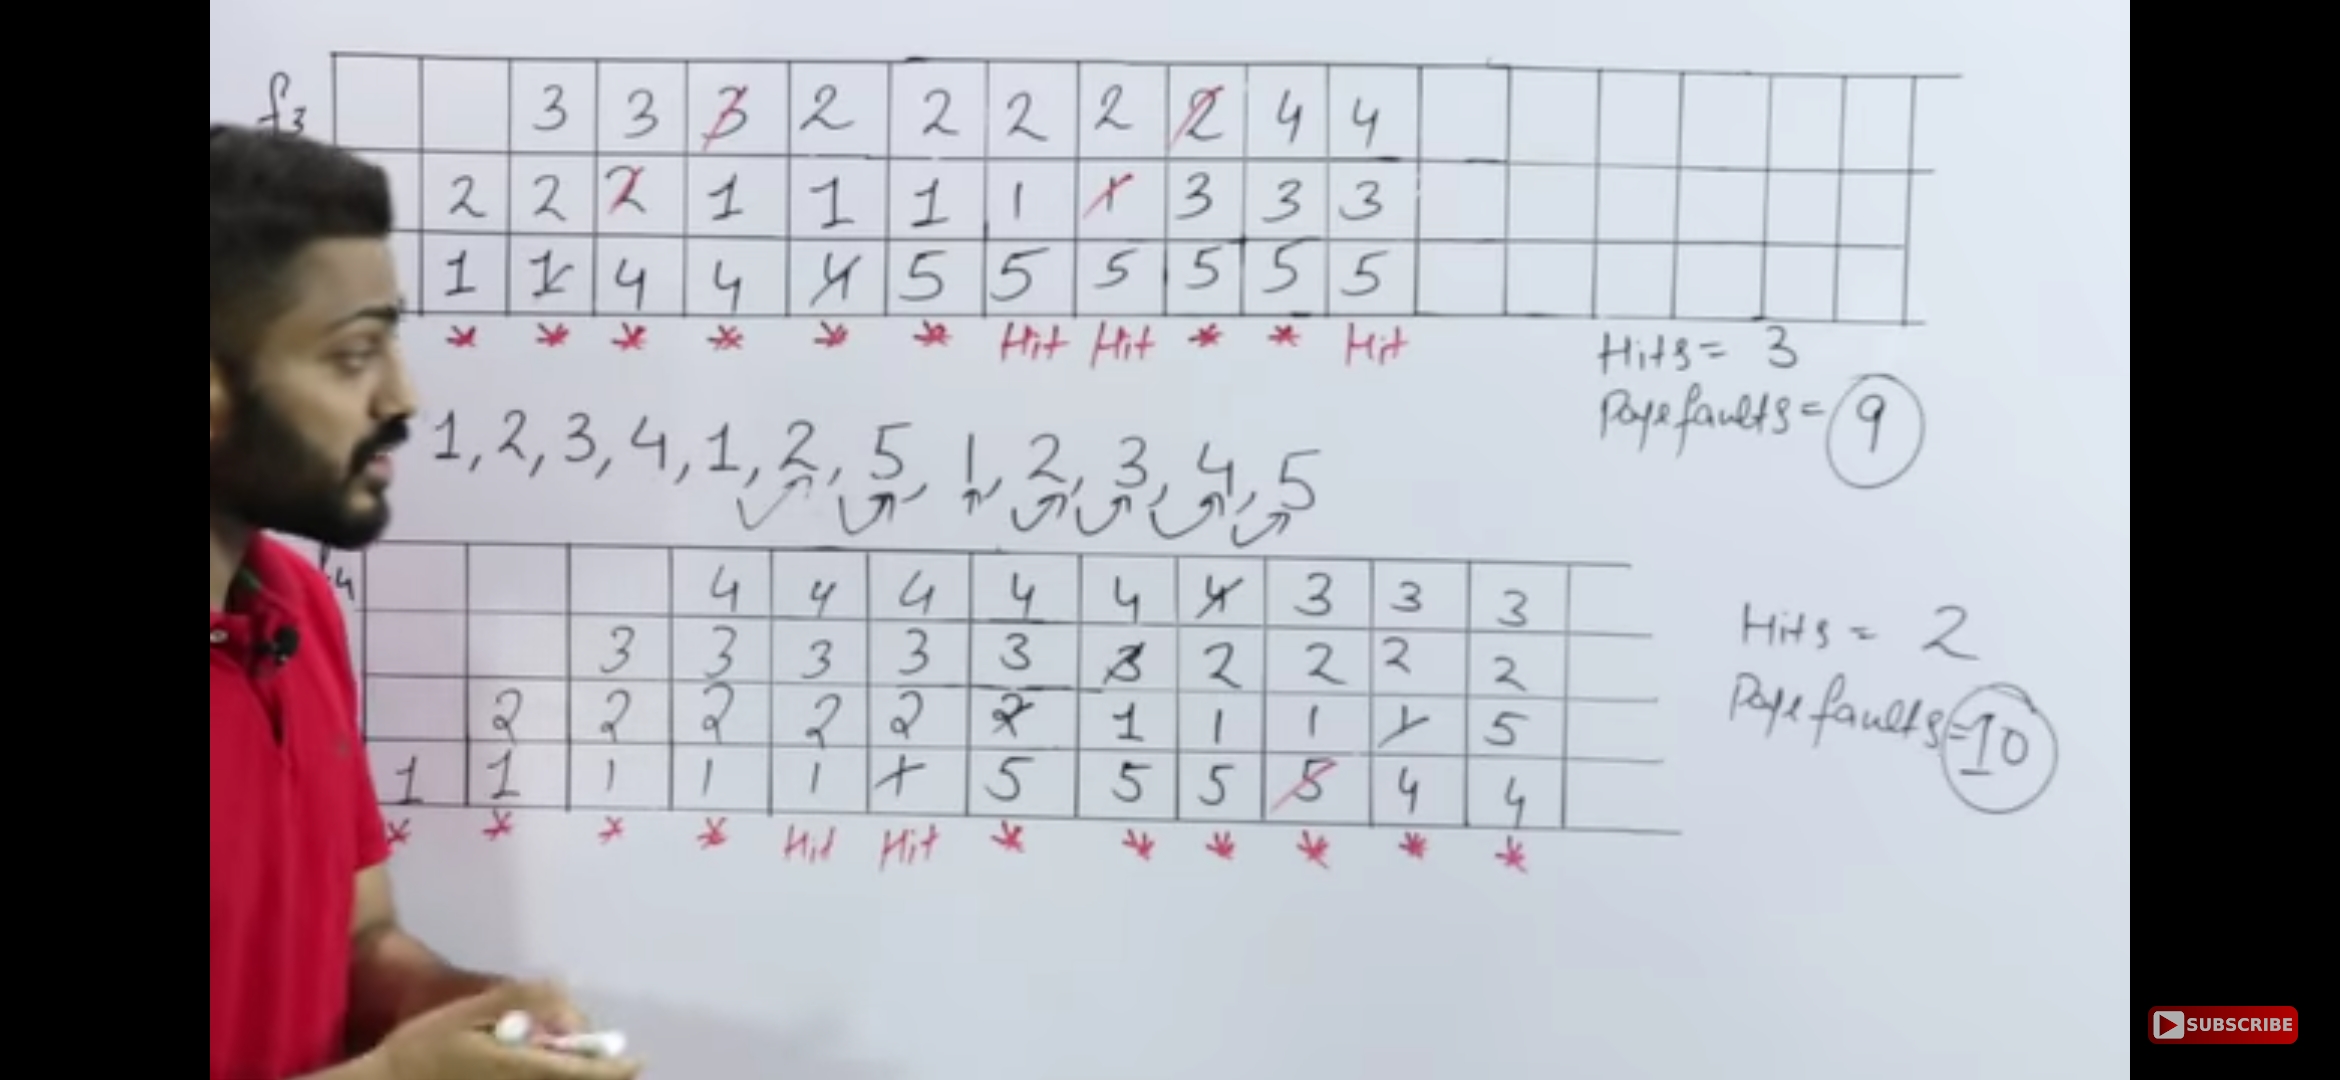 f3 3 3 3 2 2 2 2 2 4 4
2 2 2 1 1 1 1 1 3 3 3
1 1 4 4 4 5 5 5 5 5 5
* * * * * * Hit Hit * * Hit
Hits = 3
Pagefaults = 9
1, 2, 3, 4, 1, 2, 5, 1, 2, 3, 4, 5
4 4 4 4 4 4 4 3 3 3
3 3 3 3 3 3 2 2 2 2
2 2 2 2 2 2 1 1 1 1 5
1 1 1 1 1 1 5 5 5 5 4 4
* * * * Hit Hit * * * * * *
Hits = 2
Page faults = 10
SUBSCRIBE